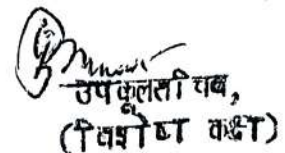 उपकुलसचिव,
(विशेष कक्ष)